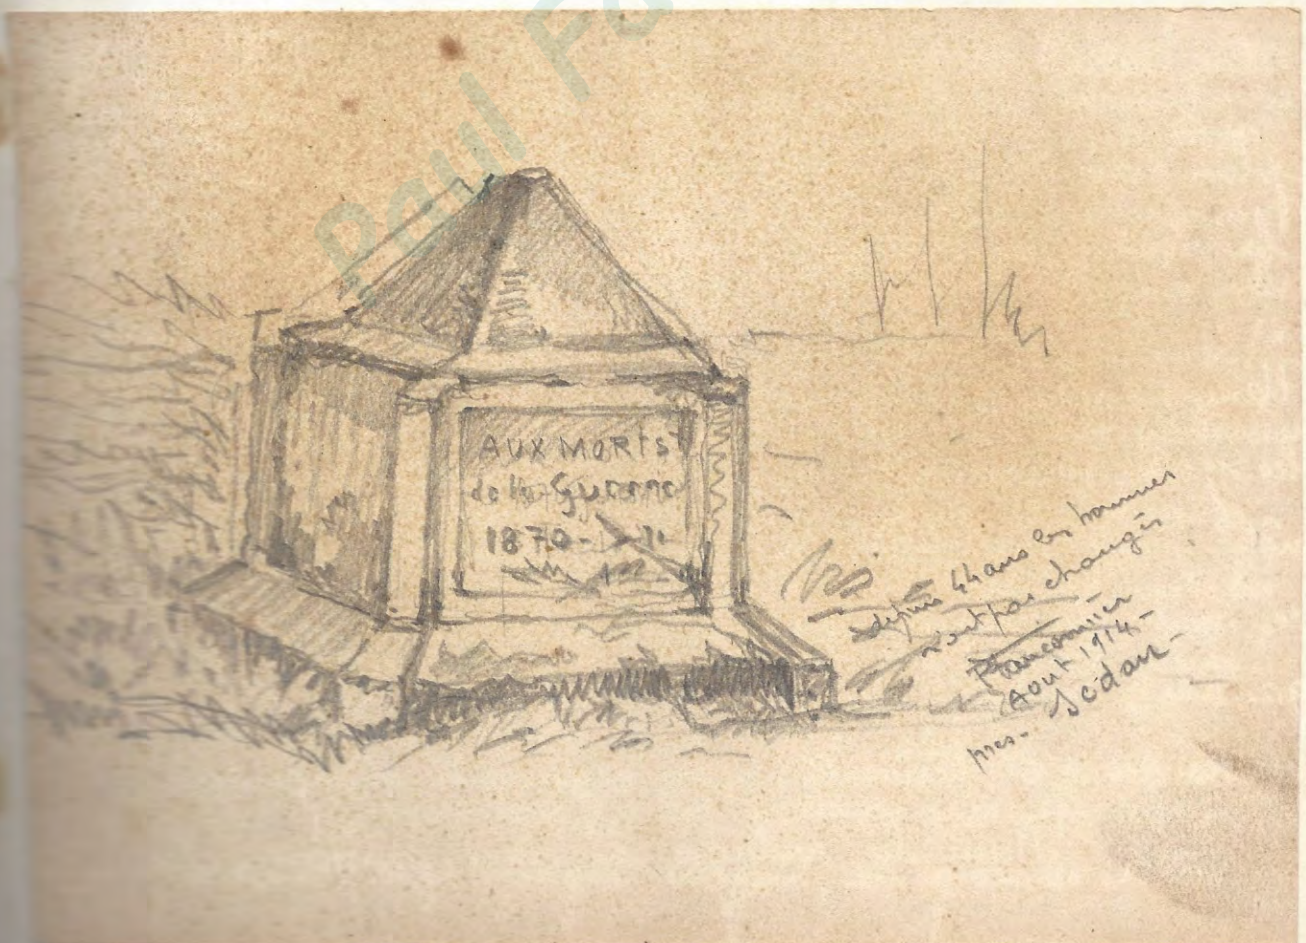 Paul Fo
AUX MORTS
de la Guerre
1870-71
depuis 44 ans les hommes
n'ont pas changés
Août 1914-
près- Sédan-